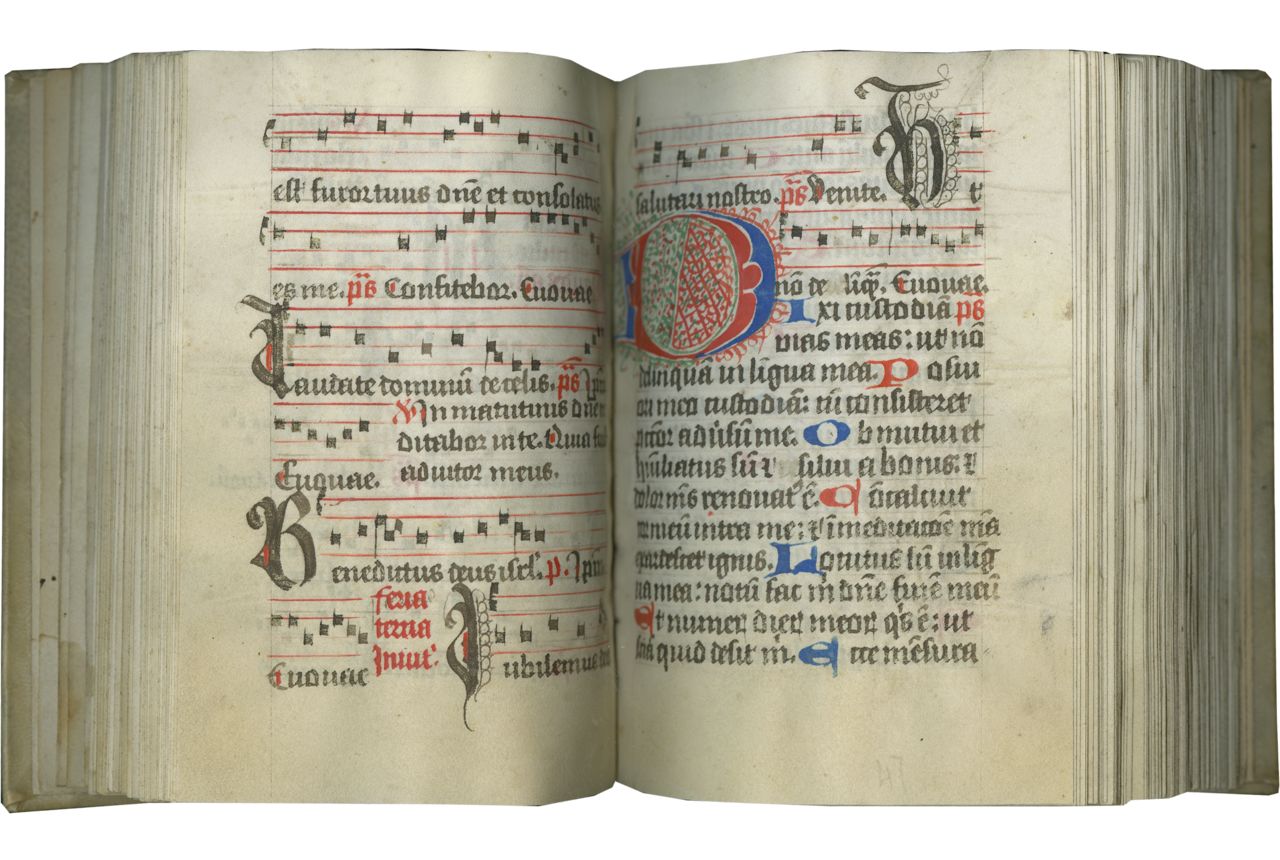 est furor tuus dñe et consolatus
es me. ps̄ Confitebor. Euouae
Laudate dominū de celis. ps̄
In matutinis dñe
ditabor in te. Quia
adiutor meus.
Euouae.
Benedictus deus isrl. p.
feria
tertia
Inuit̄.
Euouae
Iubilemus
salutari nostro. ps̄ Venite. Vt
nō de līq̄. Euouae.
DIxi custodiā ps̄
uias meas: ut nō
delinquā in ligua mea. Posui
ori meo custodiā: cū consisteret
pctor aduersū me. Obmutui et
hūiliatus sū et silui a bonis: et
dolor m̄s renouat̄ ē. Cōcaluit
cor meū intra me: et ī meditacōe mea
exardescet ignis. Locutus sū in lig
ua mea: notū fac m̄ dn̄e finē meū
Et numerū dierū meorū q̄s ē: ut
sciā quid desit m̄. Ecce mēsura